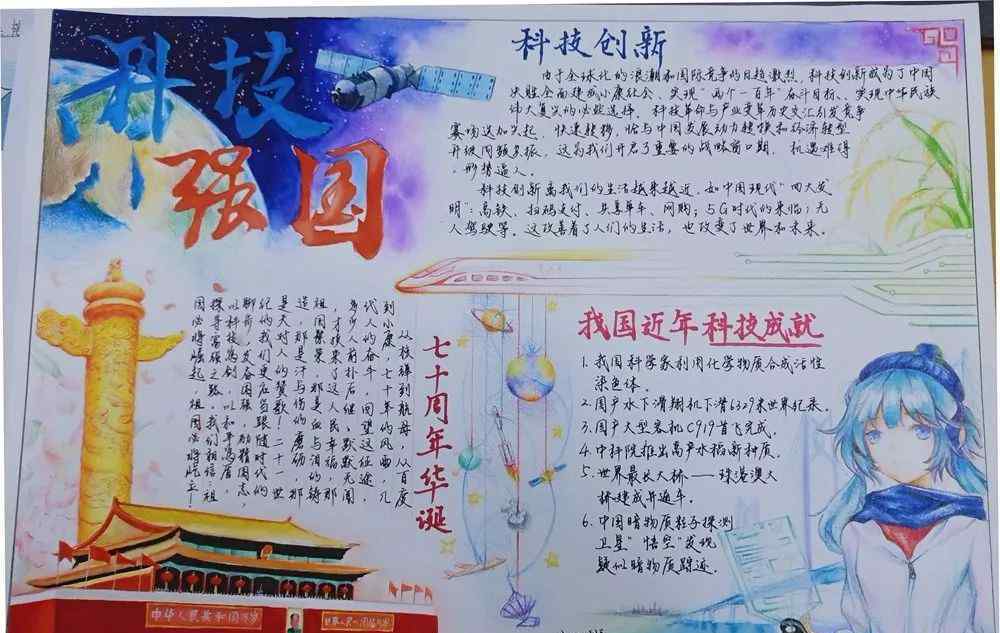 科技
强国
科技创新
由于全球化的浪潮和国际竞争的日趋激烈,科技创新成为了中国
决胜全面建成小康社会、实现"两个一百年"奋斗目标、实现中华民族
伟大复兴的必然选择。科技革命与产业变革历史交汇引发竞争
赛场送加兴起,快速转移,恰与中国发展动力转换和经济转型
升级同频共振,这为我们开启了重要的战略窗口期,机遇难得
,形势逼人。
科技创新离我们的生活越来越近。如中国现代"四大发
明":高铁、扫码支付、共享单车、网购;5G时代的来临;无
人驾驶等。这改善着了人们的生活,也改变了世界和未来。
七十周年华诞
到航母,从百度
到小康,七十年的风雨,几
代人的奋斗,回望这征途,
多少人前扑后继、默默无闻
,才换来了这人民幸福,那
祖国繁荣。那是血与泪的铸
造,那是汗与伤的磨砺,那
是天对人的赞歌!二十一世
纪的我们更应当跟随时代的
脚前,发奋图强,励精图志,
以科技为创,以和平为盾,
探寻富强之路。我们相信,祖
国必将崛起,祖国必将屹立!
我国近年科技成就
1. 我国科学家利用化学物质合成活性
染色体。
2. 国产水下滑翔机下潜6329米世界纪录。
3. 国产大型客机C919首飞完成。
4. 中科院推出高产水稻新种质。
5. 世界最长大桥——珠港澳大
桥建成并通车。
6. 中国暗物质粒子探测
卫星"悟空"发现
疑似暗物质踪迹。
中华人民共和国万岁
世界人民大团结万岁